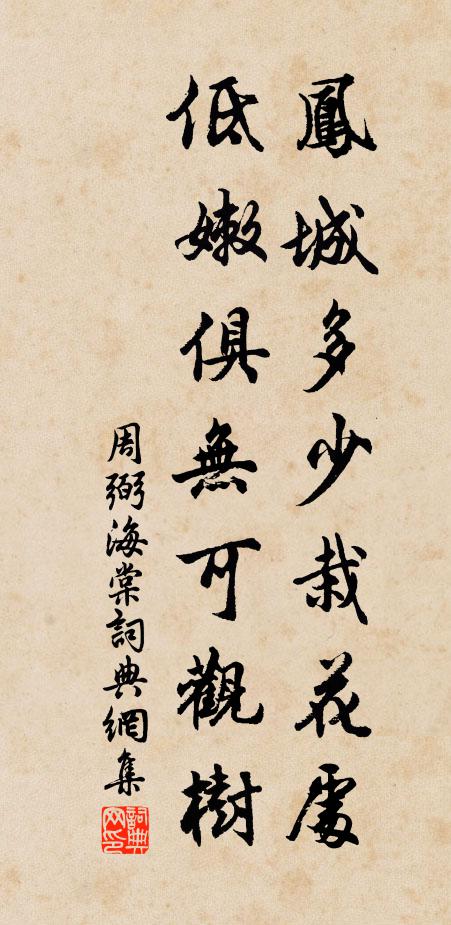 鳳城多少栽花處
低嫩俱無可觀樹
周弼海棠詞典網集
詞典網印